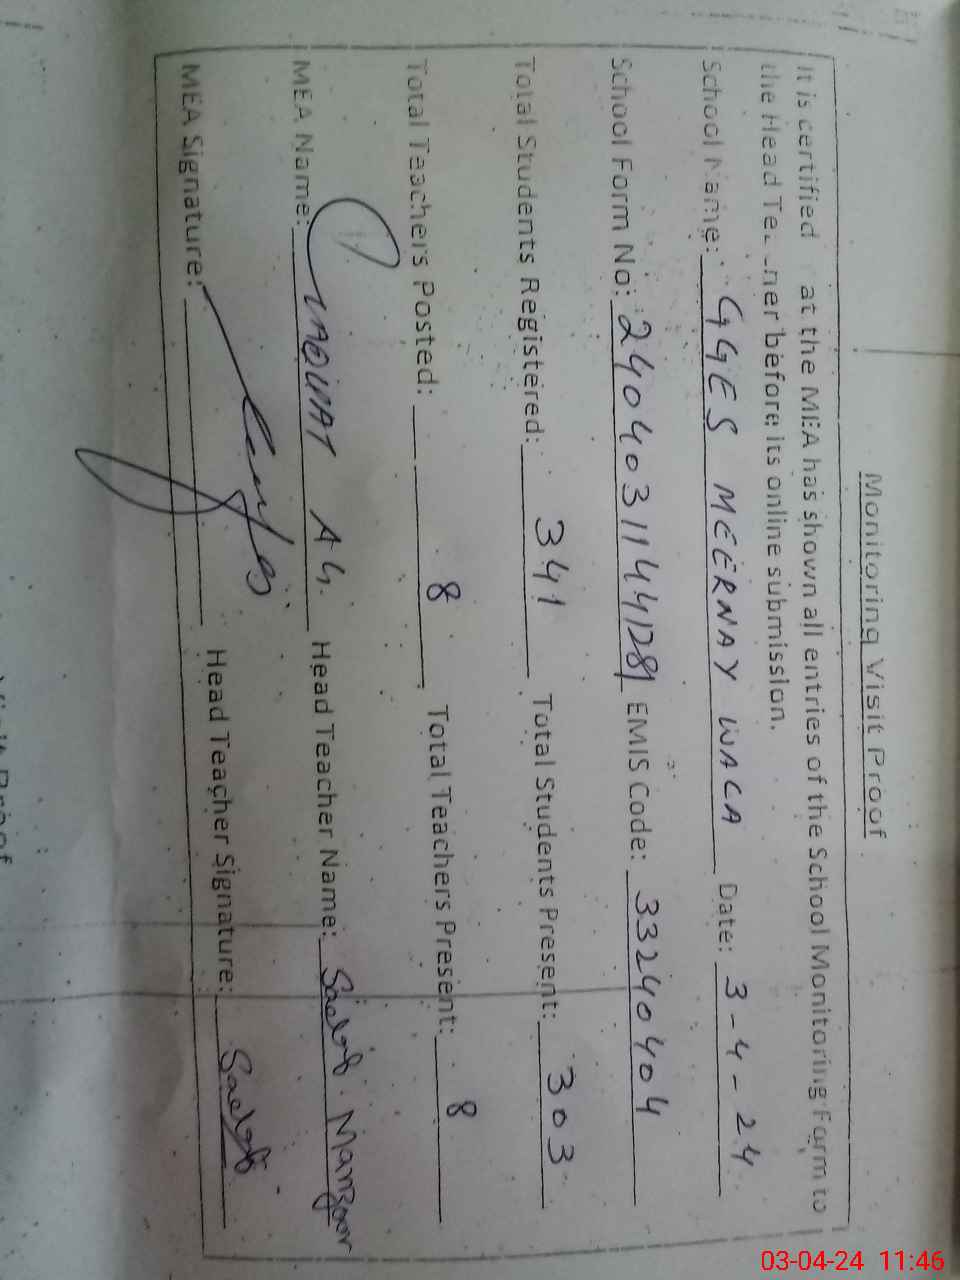 Monitoring Visit Proof
It is certified at the MEA has shown all entries of the School Monitoring Form to
the Head before its online submission.
School Name: GGES MEERNAY WACA Date: 3-4-24
School Form No: 2404031144128 EMIS Code: 33240404
Total Students Registered: 341 Total Students Present: 303
Total Teachers Posted: 8 Total Teachers Present: 8
MEA Name: Head Teacher Name: Manzoor
MEA Signature: Head Teacher Signature:
03-04-24 11:46